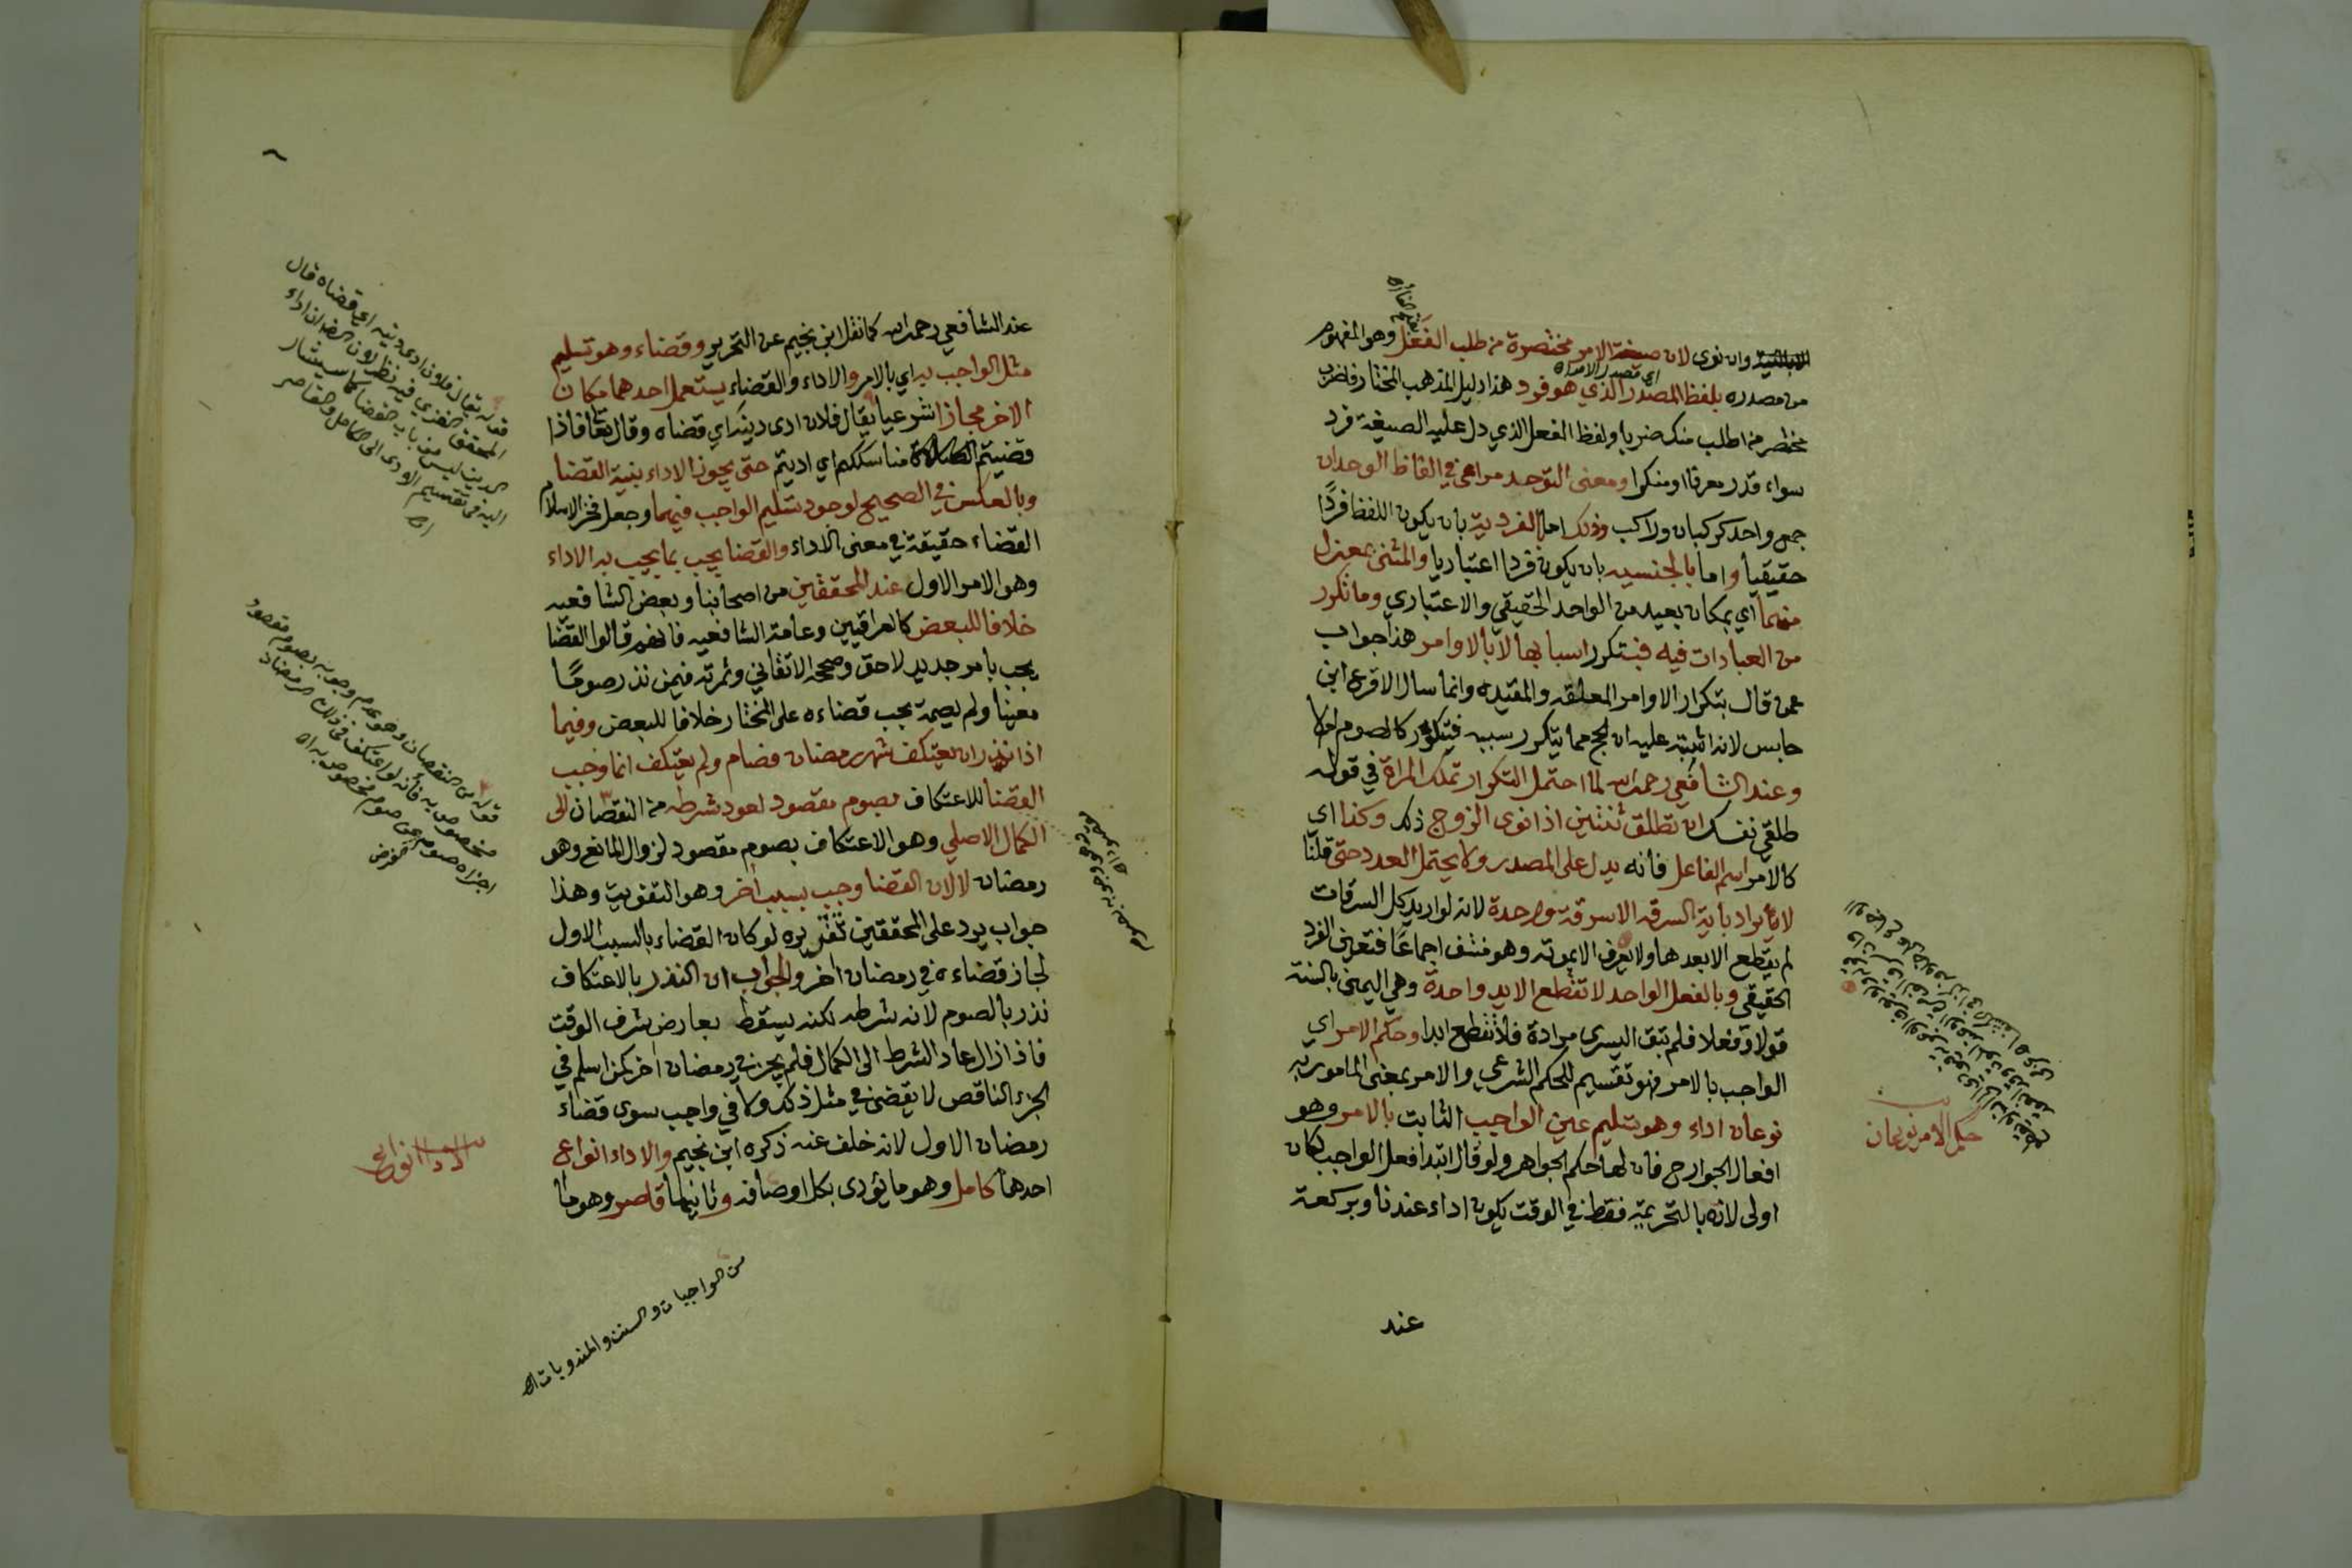 وان نوى لان صيغة الامر مختصرة من طلب الفعل وهو المفهوم
من مصدره بلفظ المصدر الذي هو فرد وهذا دليل المذهب المختار فاضرب
مختصر من اطلب منك ضربا ولفظ الفعل الذي دل عليه الصيغة فرد
سواء قدر معرفا او منكرا ومعنى التوحد مراعى في الفاظ الوحدان
جمع واحد كركبان وراكب وذلك اما بالفردية بان يكون اللفظ فردا
حقيقيا واما بالجنسيه بان يكون فردا اعتباريا والمثنى بمعزل
منهما اي بمكان بعيد من الواحد الحقيقي والاعتباري وما تكرر
من العبادات فيه فبتكرر اسبابها لا بالاوامر هذا جواب
عمن قال بتكرار الاوامر المعلقه والمقيده وانما سال الاقرع ابن
حابس لانه اشتبه عليه ان الحج مما يتكرر سببه فيتكرر كالصوم ام لا
وعند الشافعي رحمه الله لما احتمل التكرار تملك المراة في قوله
طلقي نفسك ان تطلق ثنتين اذا نوى الزوج ذلك وكذا اي
كالامر اسم الفاعل فانه يدل على المصدر ولا يحتمل العدد حتى قلنا
لا يراد باية السرقه الا سرقة واحدة لانه لو اريد كل السرقات
لم يقطع الا بعدها ولا يعرف الا بموته وهو منتف اجماعا فتعين الفرد
الحقيقي وبالفعل الواحد لا تقطع الا يد واحدة وهي اليمنى بالسنة
قولا وفعلا فلم تبق اليسرى مرادة فلا تقطع ابدا وحكم الامر اي
الواجب بالامر فهو تقسيم للحكم الشرعي والامر بمعنى المامور به
نوعان اداء وهو تسليم عين الواجب الثابت بالامر وهو
افعال الجوارح فان لها حكم الجواهر ولو قال ابتدا فعل الواجب لكان
اولى لانه بالتحريمة فقط في الوقت يكون اداء عندنا وبركعة
عند
اي مصدر الامر اه
حكم الامر نوعان
عند الشافعي رحمه الله كما نقل ابن نجيم عن التحرير وقضاء وهو تسليم
مثل الواجب به اي بالامر والاداء والقضاء يستعمل احدهما مكان
الاخر مجازا شرعيا يقال فلان ادى دينه اي قضاه وقال تعا فاذا
قضيتم مناسككم اي اديتم حتى يجوز الاداء بنية القضا
وبالعكس في الصحيح لوجود تسليم الواجب فيهما وجعل فخر الاسلام
القضاء حقيقة في معنى الاداء والقضا يجب بما يجب به الاداء
وهو الامر الاول عند المحققين من اصحابنا وبعض الشافعيه
خلافا للبعض كالعراقيين وعامة الشافعيه فانهم قالوا القضا
يجب بامر جديد لاحق وصححه الاتقاني وثمرته فيمن نذر صوما
معينا ولم يصمه يجب قضاءه على المختار خلافا للبعض وفيما
اذا نذر ان يعتكف شهر رمضان فصام ولم يعتكف انما وجب
القضا للاعتكاف بصوم مقصود لعود شرطه من النقصان الى
الكمال الاصلي وهو الاعتكاف بصوم مقصود لزوال المانع وهو
رمضان لا لان القضا وجب بسبب اخر وهو التفويت وهذا
جواب يرد على المحققين تقريره لو كان القضاء بالسبب الاول
لجاز قضاءه في رمضان اخر والجواب ان النذر بالاعتكاف
نذر بالصوم لانه شرطه لكنه يسقط بعارض شرف الوقت
فاذا زال عاد الشرط الى الكمال فلم يجز في رمضان اخر كمن اسلم في
الجزء الناقص لا يقضى في مثل ذلك ولا في واجب سوى قضاء
رمضان الاول لانه خلف عنه ذكره ابن نجيم والاداء انواع
احدها كامل وهو ما يؤدى بكل اوصافه وثانيها قاصر وهو ما
قوله يقال فلان ادى دينه اي قضاه قال
المحقق الغزي فيه نظر لان الضمان اداء
الدين ليس من باب القضا كما سيشار
اليه في تقسيم الادى الى الكامل والقاصر
اه
قوله من النقصان وهو عدم وجوبه بصوم مقصود
مخصوص به فانه لو اعتكف في ذلك الرمضان
اجزاه صومه عن صوم مخصوص به اه
الاداء انواع
من الواجبات والسنن والمندوبات اه